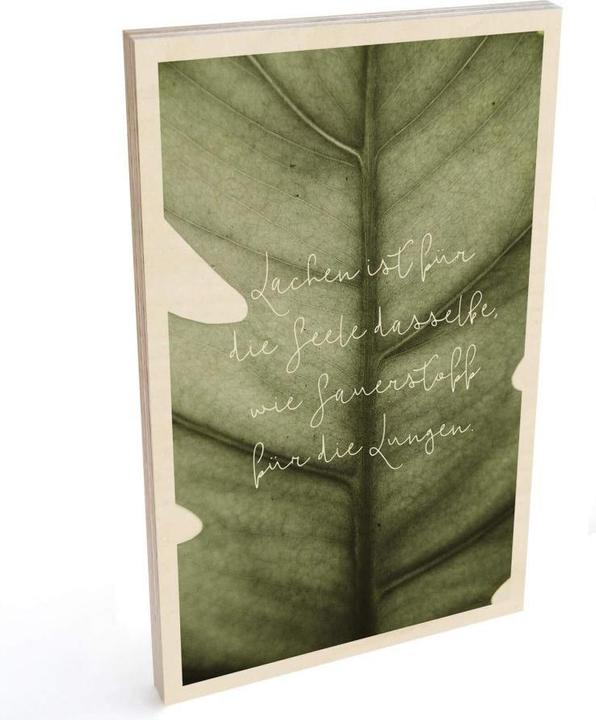 Lachen ist für
die Seele dasselbe,
wie Sauerstoff
für die Lungen.